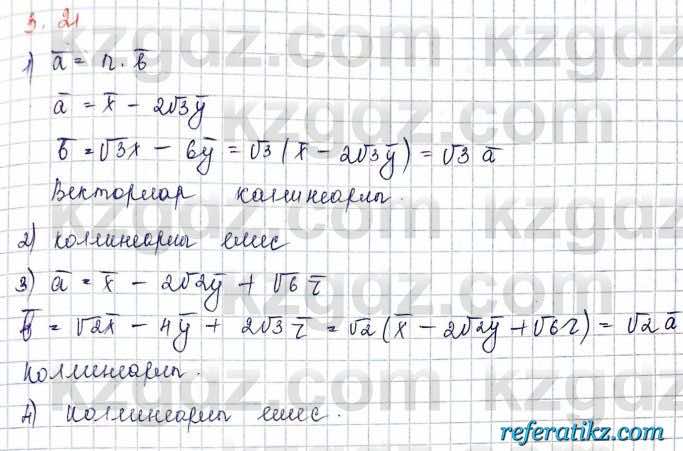 3.21
1) a̅ = n · b̅
a̅ = x̅ - 2√3y̅
b̅ = √3x - 6y̅ = √3(x̅ - 2√3y̅) = √3 a̅
Векторлар коллинеарлы.
2) коллинеарлы емес
3) a̅ = x̅ - 2√2y̅ + √6 z̅
b̅ = √2x̅ - 4y̅ + 2√3 z̅ = √2(x̅ - 2√2y̅ + √6z) = √2 a̅
Коллинеарлы.
4) Коллинеарлы емес.
kzgdz.com
referatikz.com